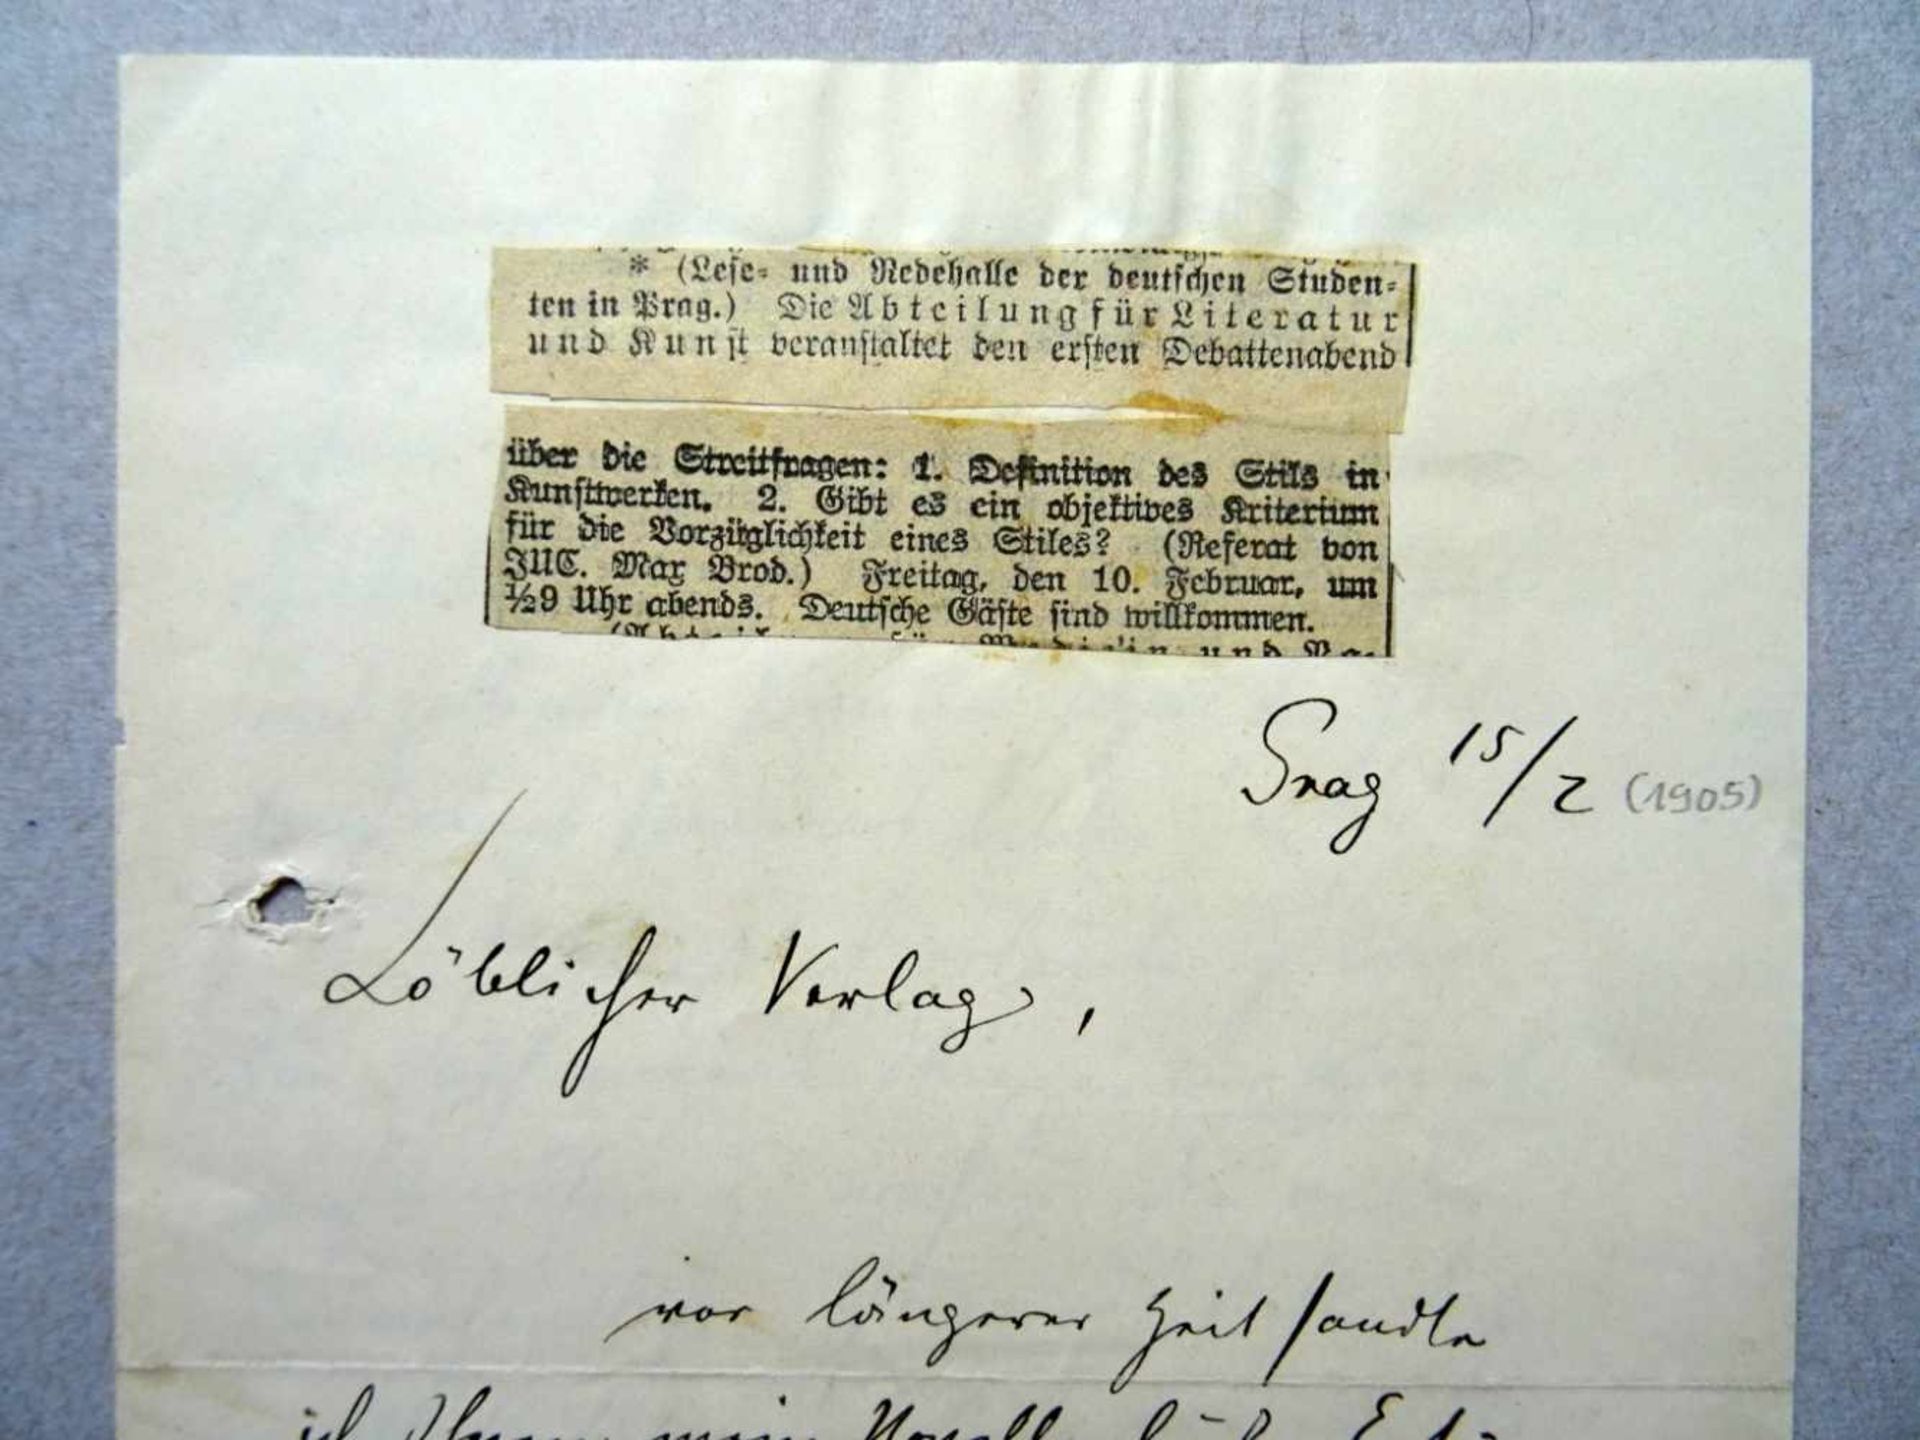 * (Lese- und Redehalle der deutschen Studen-
ten in Prag.) Die Abteilung für Literatur
und Kunst veranstaltet den ersten Debattenabend
über die Streitfragen: 1. Definition des Stils in
Kunstwerken. 2. Gibt es ein objektives Kriterium
für die Vorzüglichkeit eines Stiles? (Referat von
JUC. Max Brod.) Freitag, den 10. Februar, um
½9 Uhr abends. Deutsche Gäste sind willkommen.
Prag 15/2 (1905)
Löblicher Verlag,
vor längerer Zeit sandte
ich Ihnen